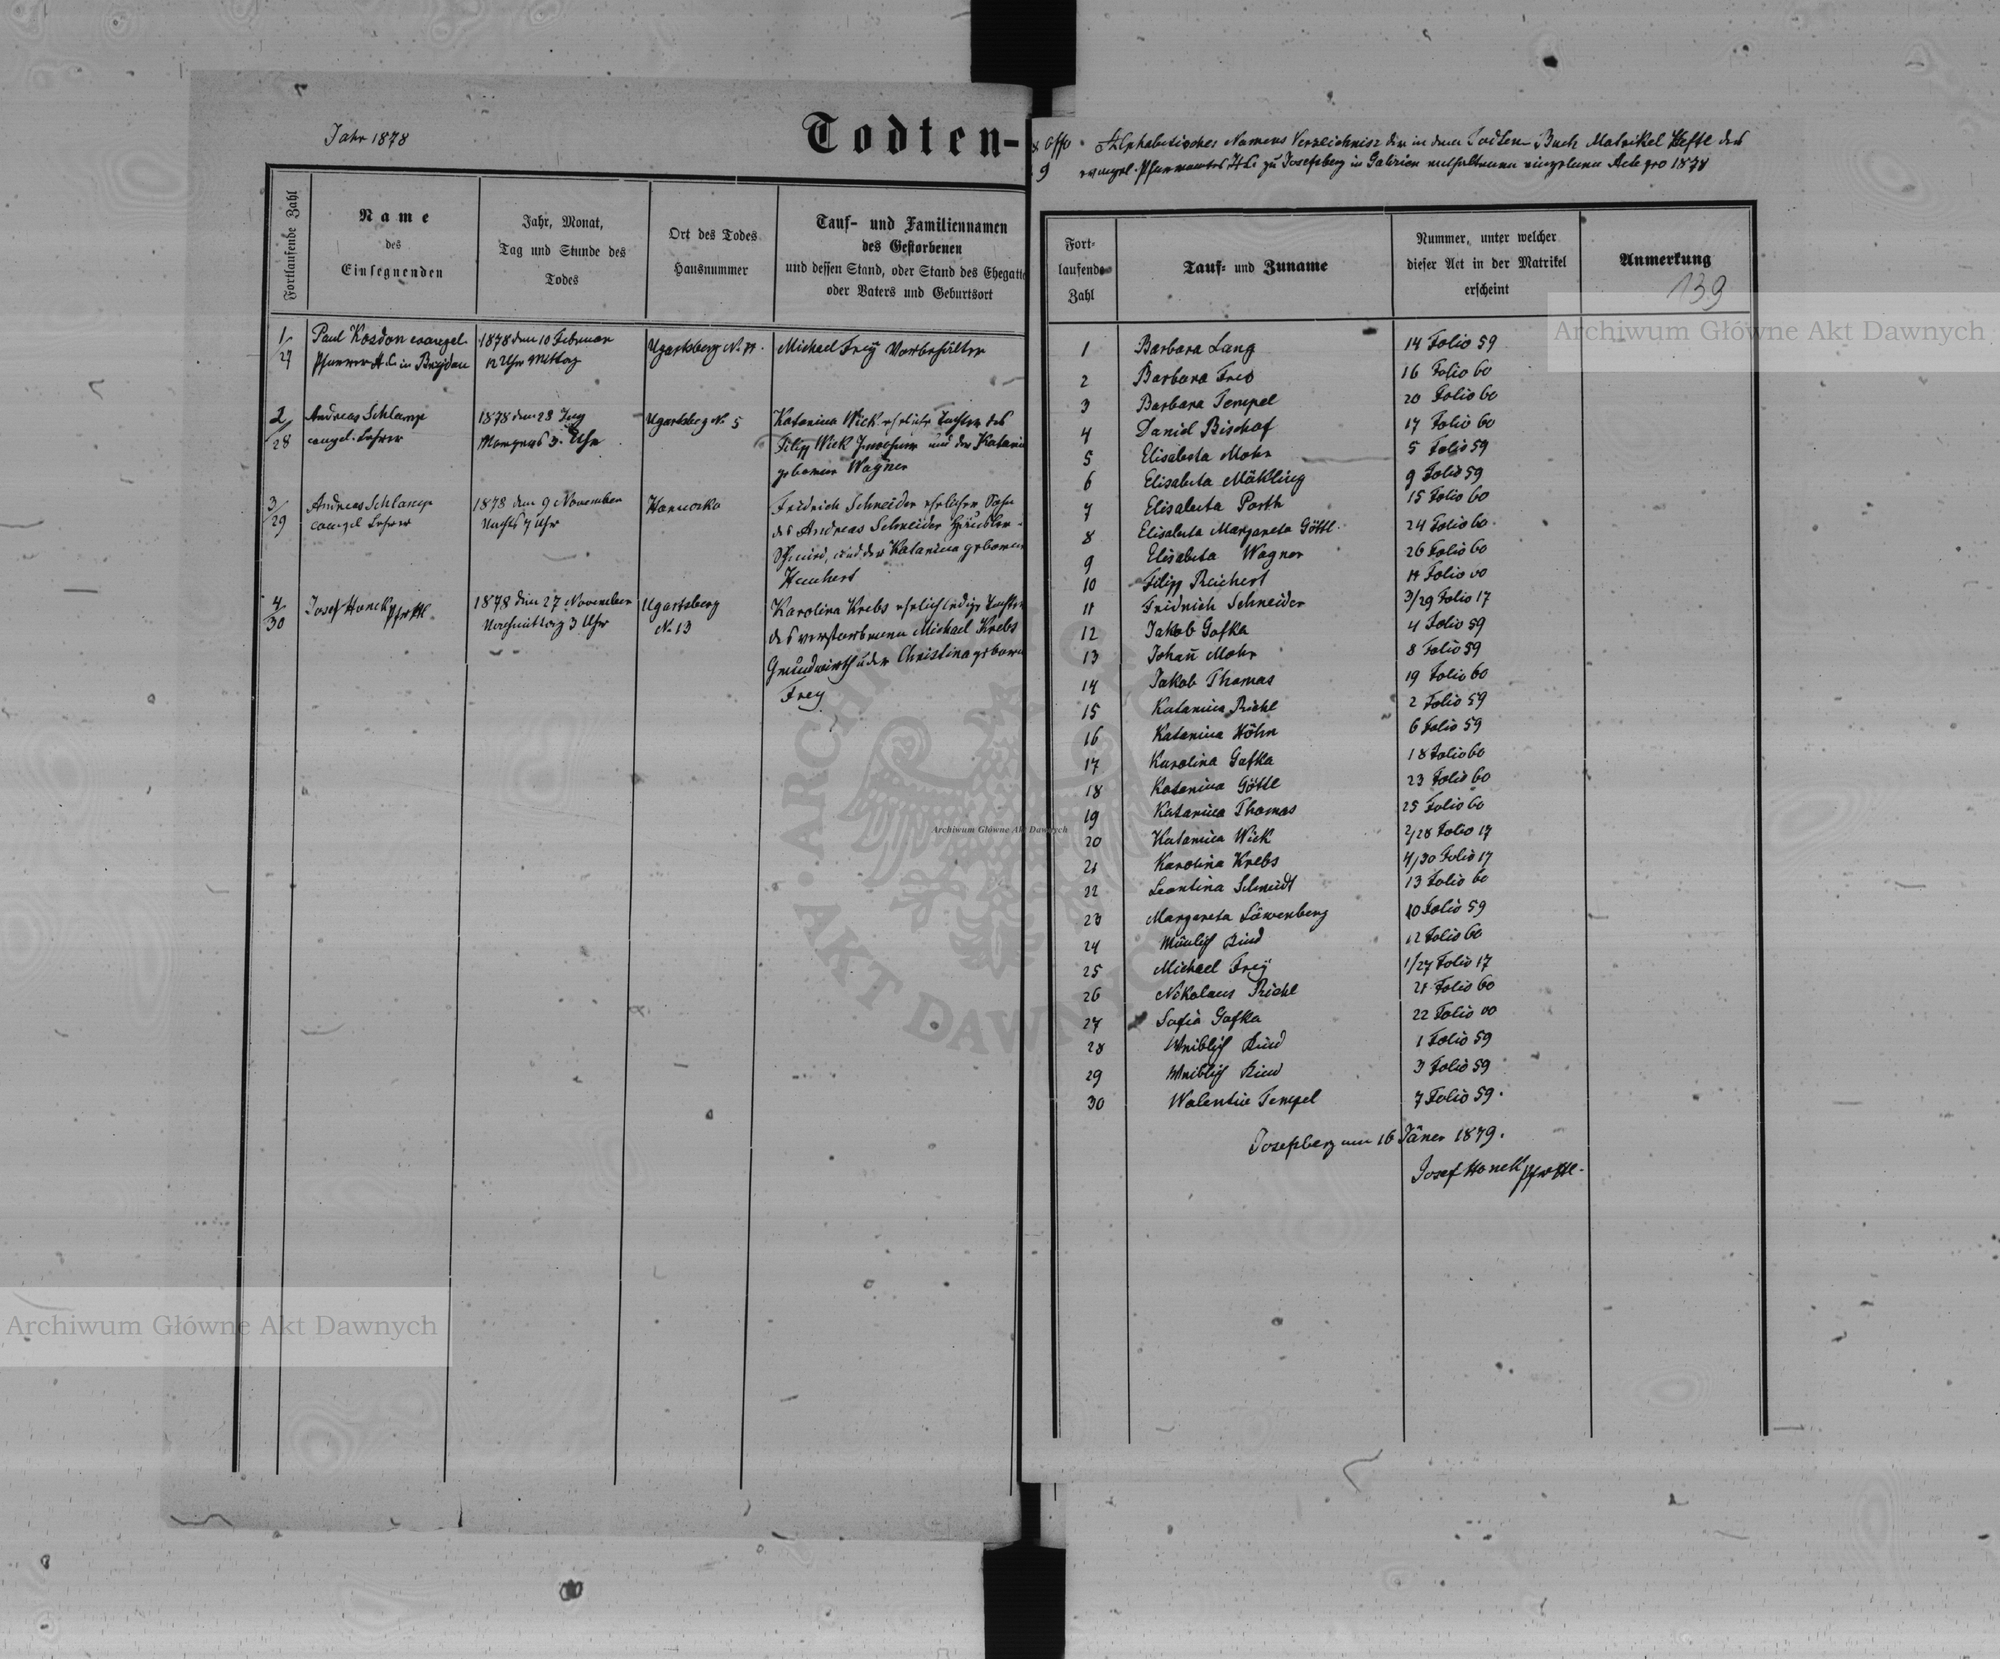 Jahr 1878
Todten-
Fortlaufende Zahl
Name
des
Einsegnenden
Jahr, Monat,
Tag und Stunde des
Todes
Ort des Todes
Hausnummer
Tauf- und Familiennamen
des Gestorbenen
und dessen Stand, oder Stand des Ehegatte
oder Vaters und Geburtsort
1/27
Paul Kosdon evangel.
Pfarrer A.C. in
1878 den 10 Februar
12 Uhr Mittag
Ugartsberg No.
Michael Freÿ
2/28
Andreas Schlamp
evangel. Lehrer
1878 den 28
Morgens 3 Uhr
Ugartsberg No 5
Katarina Wick eheliche Tochter des
Filipp Wick und der Katarin
geborenen Wagner
3/29
Andreas Schlamp
evangel Lehrer
1878 den 9 November
Nachts 7 Uhr
Friedrich Schneider ehelicher Sohn
des Andreas Schneider
Schmied, und der Katarina geborenen
4/30
Josef Honek Pfr
1878 den 27 November
Nachmittag 3 Uhr
Ugartsberg
No 13
Karolina Krebs ehelich ledige Tochter
des verstorbenen Michael Krebs
Grundwirth u der Christina geboren
Frey
9
Alphabetisches Namens Verzeichniss der in dem Todten Buch Matrikel Hefte des
evangel. Pfarramtes A.C. zu Josefsberg in Galizien enthaltenen einzelnen Acte pro 1878
Fort-
laufende
Zahl
Tauf- und Zuname
Nummer, unter welcher
dieser Act in der Matrikel
erscheint
Anmerkung
139
1 Barbara Lang 14 Folio 59
2 Barbara 16 Folio 60
3 Barbara Tempel 20 Folio 60
4 Daniel Bischof 17 Folio 60
5 Elisabeta Mohr 5 Folio 59
6 Elisabeta 9 Folio 59
7 Elisabeta Porth 15 Folio 60
8 Elisabeta Margareta Göttl 24 Folio 60
9 Elisabeta Wagner 26 Folio 60
10 Filipp Reichert 11 Folio 60
11 Fridrich Schneider 3/29 Folio 17
12 Jakob Gafka 4 Folio 59
13 Johañ Mohr 8 Folio 59
14 Jakob Thomas 19 Folio 60
15 Katarina Richl 2 Folio 59
16 Katarina Höhn 6 Folio 59
17 Karolina Gafka 18 Folio 60
18 Katarina Göttl 23 Folio 60
19 Katarina Thomas 25 Folio 60
20 Katarina Wick 2/28 Folio 17
21 Karolina Krebs 4/30 Folio 17
22 Leontina Schmidt 13 Folio 60
23 Margareta Löwenberg 10 Folio 59
24 Mänlich Kind 12 Folio 60
25 Michael Freÿ 1/27 Folio 17
26 Nikolaus Richl 21 Folio 60
27 Sofia Gafka 22 Folio 60
28 Weiblich Kind 1 Folio 59
29 Weiblich Kind 3 Folio 59
30 Walentin Tempel 7 Folio 59.
Josefsberg am 16 Jäner 1879.
Josef Honek Pfr
Archiwum Główne Akt Dawnych
Archiwum Główne Akt Dawnych
Archiwum Główne Akt Dawnych